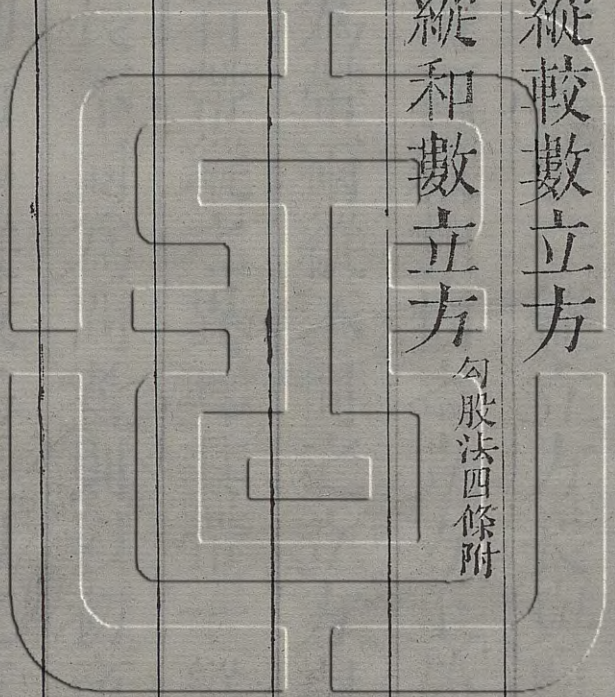 縱較數立方
縱和數立方
勾股法四條附